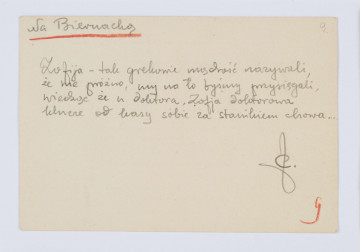 Na Biernacką
9
Zofija – tak grekowie mądrość nazywali,
że nie próżno, my na to byśmy przysięgali,
wiedząc że u doktora, Zofja doktorowa
klucze od kasy sobie za stanikiem chowa...
9